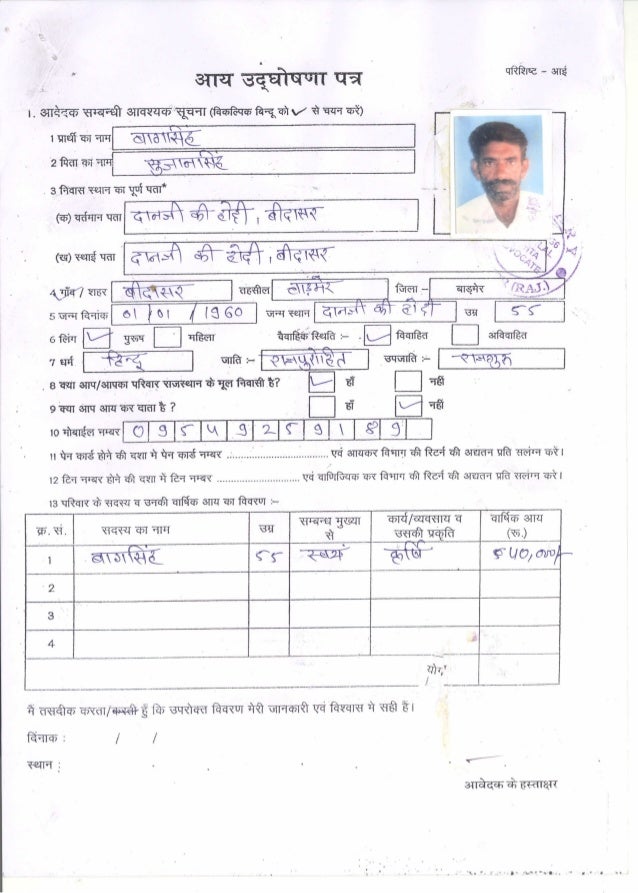 परिशिष्ट - आई
आय उद्घोषणा पत्र
1. आवेदक सम्बन्धी आवश्यक सूचना (विकल्पिक बिन्दू को ✓ से चयन करें)
1 प्रार्थी का नाम बागसिंह
2 पिता का नाम सुजानसिंह
3 निवास स्थान का पूर्ण पता*
(क) वर्तमान पता दानजी की होदी, बीदासर
(ख) स्थाई पता दानजी की होदी, बीदासर
4 गाँव / शहर बीदासर तहसील बाड़मेर जिला – बाड़मेर
5 जन्म दिनांक 01 / 01 / 1960 जन्म स्थान दानजी की होदी उम्र 55
6 लिंग ✓ पुरूष महिला वैवाहिक स्थिति :- ✓ विवाहित अविवाहित
7 धर्म हिन्दू जाति :- राजपुरोहित उपजाति :- राजगुरु
8 क्या आप/आपका परिवार राजस्थान के मूल निवासी है? ✓ हाँ नहीं
9 क्या आप आय कर दाता है ? हाँ ✓ नहीं
10 मोबाईल नम्बर 09549259189
11 पेन कार्ड होने की दशा मे पेन कार्ड नम्बर ............................ एवं आयकर विभाग की रिटर्न की अद्यतन प्रति सलंग्न करे।
12 टिन नम्बर होने की दशा में टिन नम्बर ........................ एवं वाणिज्यिक कर विभाग की रिटर्न की अद्यतन प्रति सलंग्न करे।
13 परिवार के सदस्य व उनकी वार्षिक आय का विवरण :–
क्र.सं. सदस्य का नाम उम्र सम्बन्ध मुख्या से कार्य/व्यवसाय व उसकी प्रकृति वार्षिक आय (रू.)
1 बागसिंह 55 स्वयं कृषि 40,000/-
2
3
4
योग
मैं तसदीक करता/करती हुँ कि उपरोक्त विवरण मेरी जानकारी एवं विश्वास मे सही हैं।
दिंनाक : / /
स्थान :
आवेदक के हस्ताक्षर
ADVOCATE
(RAJ.)